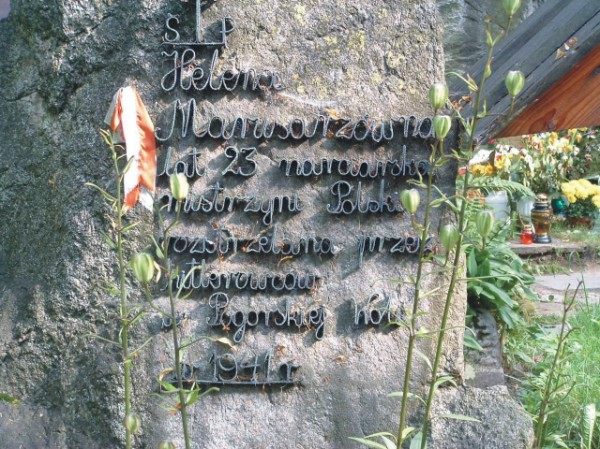 Ś P
Helena
Marusarzówna
lat 23 narciarska
mistrzyni Polski
rozstrzelana przez
hitlerowców
w Pogórskiej Woli
1941 r